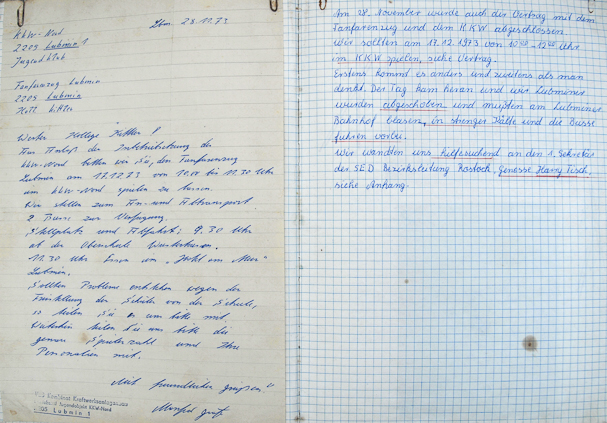 Lbm. 28.11.73
KKW-Nord
2205 Lubmin 1
Jugendklub
Fanfarenzug Lubmin
2205 Lubmin
Werter Kollege
Aus Anlaß der Inbetriebnahme des
KKW-Nord bitten wir Sie, den Fanfarenzug
Lubmin am 17.12.73 von bis 11.30 Uhr
am KKW-Nord spielen zu lassen.
Wir stellen zum An- und Abtransport
2 Busse zur Verfügung.
Stellplatz und Abfahrt: 9.30 Uhr
an der Oberschule
11.30 Uhr Essen im
Lubmin.
Sollten Probleme entstehen wegen der
Freistellung der Schüler von der Schule,
so teilen Sie es uns bitte mit.
Weiterhin teilen Sie uns bitte die
genaue Spielerzahl und Ihre
Personalien mit.
Mit freundlichen Grüßen
Manfred
VEB Kombinat Kraftwerksanlagenbau
KKW-Nord
2205 Lubmin 1
Am 28. November wurde auch der Vertrag mit dem
Fanfarenzug und dem KKW abgeschlossen.
Wir sollten am 17.12.1973 von 10⁰⁰ - 12⁰⁰ Uhr
im KKW spielen, siehe Vertrag.
Erstens kommt es anders und zweitens als man
denkt. Der Tag kam heran und wir Lubminer
wurden abgeschoben und mußten am Lubminer
Bahnhof blasen, in strenger Kälte und die Busse
fuhren vorbei.
Wir wandten uns hilfesuchend an den 1. Sekretär
der SED Bezirksleitung Rostock, Genosse Harry Tisch,
siehe Anhang.